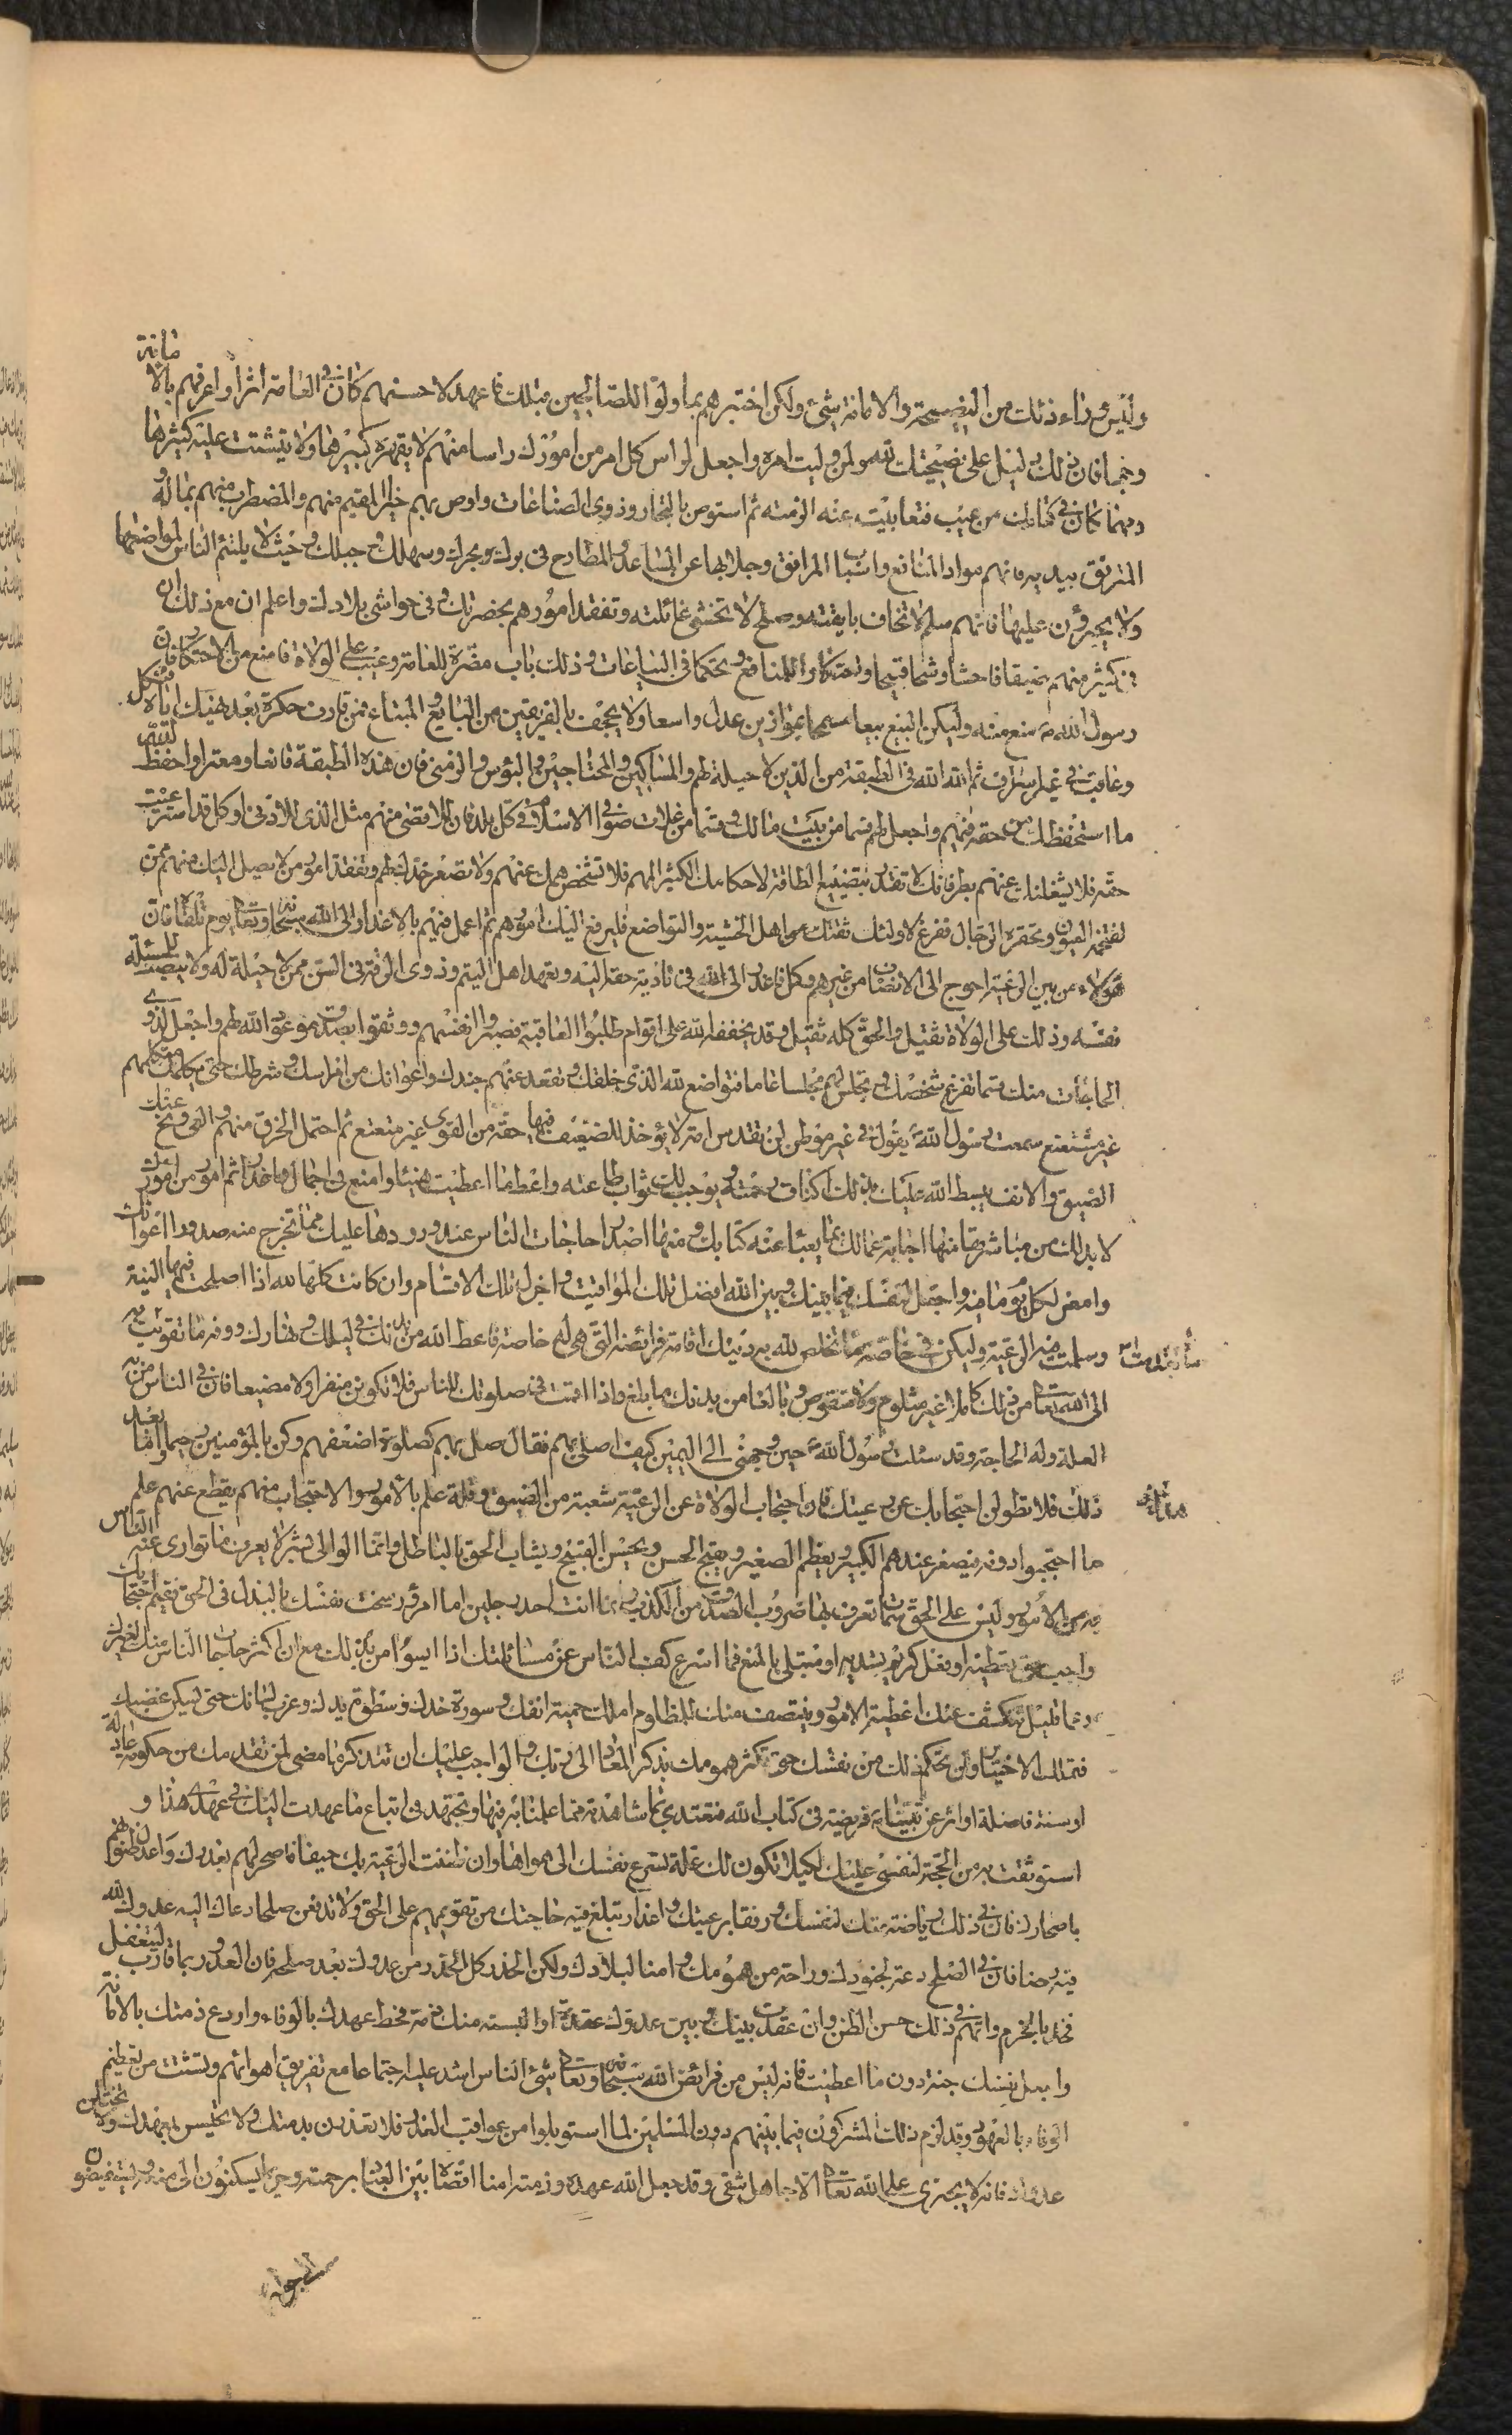 وليس وراء ذلك من النصيحة والامانة شئ ولكن اختبرهم بما ولوا للصالحين قبلك فاعهد لاحسنهم كان في العامة اثرا واعرفهم بالامانة
وجها فان ذلك دليل على نصيحتك لله ولمن وليت امره واجعل لراس كل امر من امورك راسا منهم لا يقهره كبيرها ولا يتشتت عليه كثيرها
ومهما كان في كتابك من عيب فتغابيت عنه الزمته ثم استوص بالتجار وذوي الصناعات واوص بهم خيرا المقيم منهم والمضطرب منهم بماله و
المترفق ببدنه فانهم مواد المنافع واسباب المرافق وجلابها عن المباعد والمطارح في برك وبحرك وسهلك وجبلك وحيث لا يلتئم الناس لمواضعها
ولا يجترؤن عليها فانهم سلم لا تخاف بايقته وصلح لا تخشى غائلته وتفقد امورهم بحضرتك وفي حواشي بلادك واعلم ان مع ذلك ان
في كثير منهم ضيقا فاحشا وشحا قبيحا واحتكارا للمنافع وتحكما في البياعات وذلك باب مضرة للعامة وعيب على الولاة فامنع من الاحتكار فان
رسول الله ص منع منه وليكن البيع بيعا سمحا بموازين عدل واسعار لا يجحف بالفريقين من البايع والمبتاع فمن قارف حكرة بعد نهيك اياه فنكل
وعاقب في غير اسراف ثم الله الله في الطبقة من الذين لا حيلة لهم والمساكين والمحتاجين والبؤس والزمنى فان هذه الطبقة قانعا ومعترا واحفظ لله
ما استحفظك من حقه فيهم واجعل لهم قسما من بيت مالك وقسما من غلات صوافي الاسلام في كل بلد فان للاقصى منهم مثل الذي للادنى وكل قد استرعيت
حقه فلا يشغلنك عنهم بطر فانك لا تعذر بتضييع الطاقة لاحكامك الكثير المهم فلا تشخص همك عنهم ولا تصعر خدك لهم وتفقد امور من لا يصل اليك منهم ممن
تقتحمه العيون وتحقره الرجال ففرغ لاولئك ثقتك من اهل الخشية والتواضع فليرفع اليك امورهم ثم اعمل فيهم بالاعذار الى الله سبحانه وتعالى يوم تلقاه فان
هؤلاء من بين الرعية احوج الى الانصاف من غيرهم وكل فاعذر الى الله في تادية حقه اليه وتعهد اهل اليتم وذوي الرقة في السن ممن لا حيلة له ولا ينصب للمسئلة
نفسه وذلك على الولاة ثقيل والحق كله ثقيل وقد يخففه الله على اقوام طلبوا العاقبة فصبروا انفسهم ووثقوا بصدق موعود الله لهم واجعل لذوي
الحاجات منك قسما تفرغ لهم فيه شخصك وتجلس لهم مجلسا عاما فتتواضع لله الذي خلقك وتقعد عنهم جندك واعوانك من احراسك وشرطك حتى يكلمك متكلمهم
غير متتعتع سمعت رسول الله يقول في غير موطن لن تقدس امة لا يؤخذ للضعيف فيها حقه من القوي غير متتعتع ثم احتمل الخرق منهم والعي ونح عنك
الضيق والانف يبسط الله عليك بذلك اكناف رحمته ويوجب لك ثواب طاعته واعط ما اعطيت هنيئا وامنع في اجمال واعذار ثم امور من امورك
لا بد لك من مباشرتها منها اجابة عمالك بما يعيا عنه كتابك ومنها اصدار حاجات الناس عند ورودها عليك مما تحرج منه صدور اعوانك
وامض لكل يوم ما فيه واجعل لنفسك فيما بينك وبين الله افضل تلك المواقيت واجزل تلك الاقسام وان كانت كلها لله اذا اصلحت فيها النية
وسلمت منه الرعية وليكن في خاصة ما تخلص لله به دينك اقامة فرائضه التي هي له خاصة فاعط الله من بدنك في ليلك ونهارك ووفه ما تقربت به
الى الله تعالى من ذلك كاملا غير مثلوم ولا منقوص بالغا من بدنك ما بلغ واذا اقمت في صلوتك للناس فلا تكونن منفرا ولا مضيعا فان في الناس من به
العلة وله الحاجة وقد سئلت رسول الله حين وجهني الى اليمن كيف اصلي بهم فقال صل بهم كصلوة اضعفهم وكن بالمؤمنين رحيما واما بعد
ذلك فلا تطولن احتجابك عن رعيتك فان احتجاب الولاة عن الرعية شعبة من الضيق وقلة علم بالامور والاحتجاب منهم يقطع عنهم علم
ما احتجبوا دونه فيصغر عندهم الكبير ويعظم الصغير ويقبح الحسن ويحسن القبيح ويشاب الحق بالباطل وانما الوالي بشر لا يعرف ما توارى عنه الناس
به من الامور وليس على الحق سمات تعرف بها ضروب الصدق من الكذب وانما انت احد رجلين اما امرؤ سخت نفسك بالبذل في الحق ففيم احتجابك
واجب حق تعطيه او فعل كريم تسديه او مبتلى بالمنع فما اسرع كف الناس عن مسائلتك اذا ايسوا من بذلك مع ان اكثر حاجات الناس عنك
وعما قليل تنكشف عنك اغطية الامور وينتصف منك للمظلوم املك حمية انفك وسورة خدك وسطوة يدك وغرب لسانك حتى يسكن غضبك
فتملك الاختيار ولن تحكم ذلك من نفسك حتى تكثر همومك بذكر المعاد الى ربك والواجب عليك ان تتذكر ما مضى لمن تقدمك من حكومة عادلة
او سنة فاضلة او اثر عن نبينا او فريضة في كتاب الله فتقتدي بما شاهدت مما عملنا به فيها وتجتهد في اتباع ما عهدت اليك في عهدي هذا و
استوثقت به من الحجة لنفسي عليك لكيلا تكون لك علة تسرع نفسك الى هواها وان ظنت الرعية بك حيفا فاصحر لهم بعذرك واعدل ظنونهم
باصحارك فان في ذلك رياضة منك لنفسك ورفقا برعيتك واعذارا تبلغ فيه حاجتك من تقويمهم على الحق ولا تدفعن صلحا دعاك اليه عدوك لله
فيه رضا فان في الصلح دعة لجنودك وراحة من همومك وامنا لبلادك ولكن الحذر كل الحذر من عدوك بعد صلحه فان العدو ربما قارب ليتغفل
فخذ بالحزم واتهم في ذلك حسن الظن وان عقدت بينك وبين عدوك عقدة او البسته منك ذمة فحط عهدك بالوفاء وارع ذمتك بالامانة
واجعل نفسك جنة دون ما اعطيت فانه ليس من فرائض الله سبحانه وتعالى شئ الناس اشد عليه اجتماعا مع تفريق اهوائهم وتشتت من تعظيم
الوفاء بالعهود وقد لزم ذلك المشركون فيما بينهم دون المسلمين لما استوبلوا من عواقب الغدر فلا تغدرن بذمتك ولا تخيسن بعهدك ولا تختلن
عدوك فانه لا يجترى على الله تعالى الا جاهل شقي وقد جعل الله عهده وذمته امنا افضاه بين العباد برحمته وحريما يسكنون الى منعه ويستفيضون